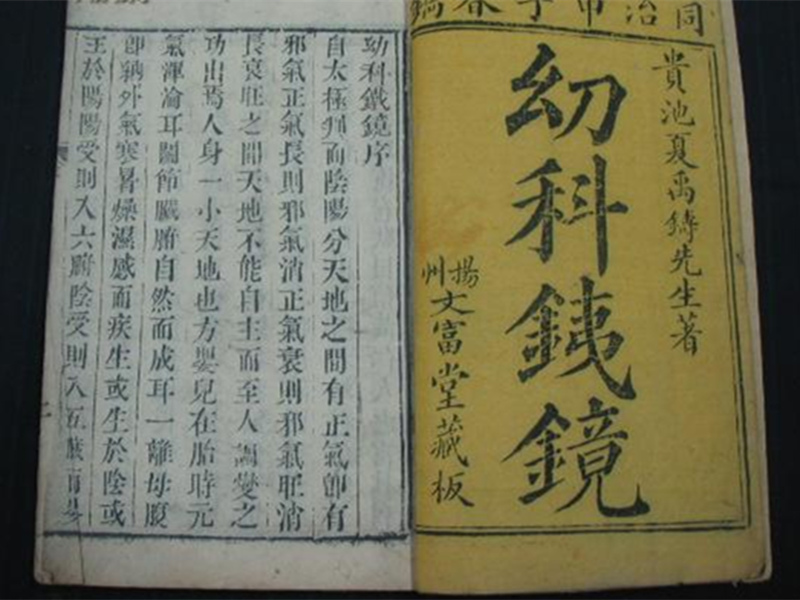 同治甲子春鐫
貴池夏禹鑄先生著
幼科銕鏡
揚州文富堂藏板
幼科鐵鏡序
自太極判而陰陽分天地之間有正氣卽有
邪氣正氣長則邪氣消正氣衰則邪氣旺消
長衰旺之間天地不能自主而至人調燮之
功出焉人身一小天地也方嬰兒在胎時元
氣渾淪耳關節臟腑自然而成耳一離母腹
卽外氣寒暑燥濕感而疾生或生於陰或
於陽陽受則入六腑陰受則入五臟